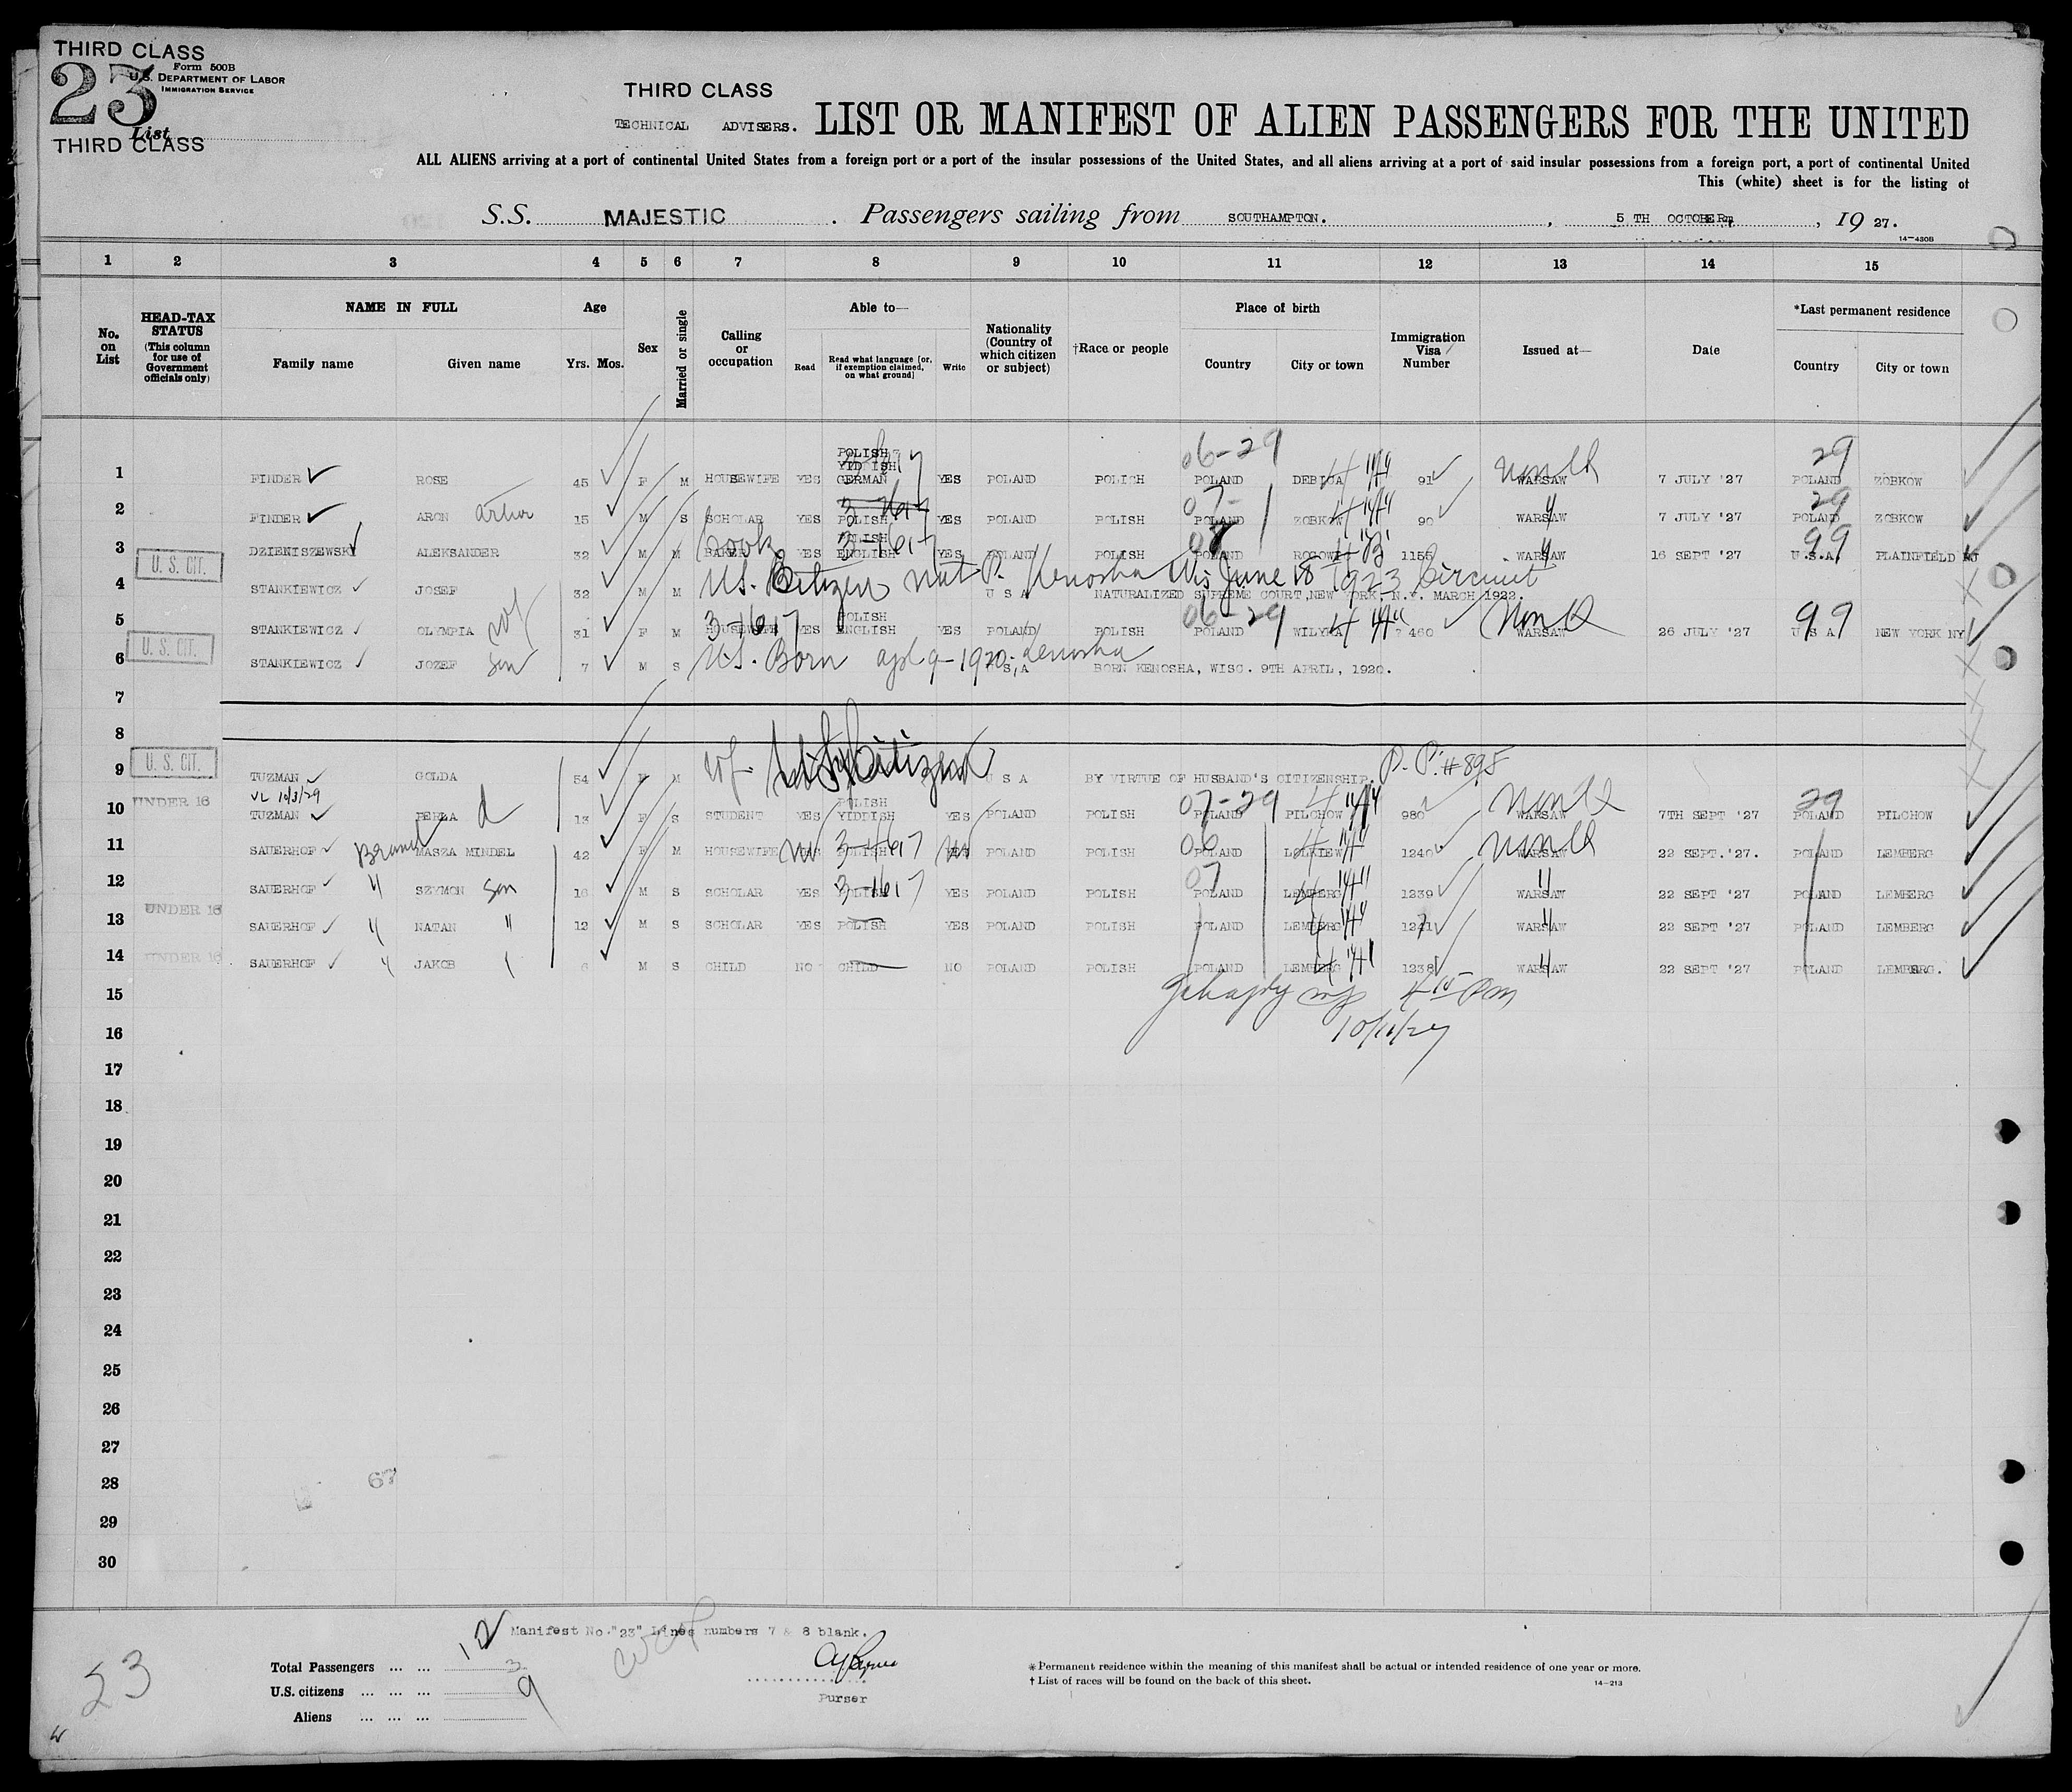 THIRD CLASS
Form 500B
23 U.S. DEPARTMENT OF LABOR
IMMIGRATION SERVICE
List
THIRD CLASS
THIRD CLASS
TECHNICAL ADVISERS. LIST OR MANIFEST OF ALIEN PASSENGERS FOR THE UNITED
ALL ALIENS arriving at a port of continental United States from a foreign port or a port of the insular possessions of the United States, and all aliens arriving at a port of said insular possessions from a foreign port, a port of continental United
This (white) sheet is for the listing of
S.S. MAJESTIC . Passengers sailing from SOUTHAMPTON. , 5 TH OCTOBER , 19 27.
14-430B
1 2 3 4 5 6 7 8 9 10 11 12 13 14 15
No. on List
HEAD-TAX STATUS (This column for use of Government officials only)
NAME IN FULL Family name Given name
Age Yrs. Mos.
Sex
Married or single
Calling or occupation
Able to— Read Read what language [or, if exemption claimed, on what ground] Write
Nationality (Country of which citizen or subject)
†Race or people
Place of birth Country City or town
Immigration Visa Number
Issued at—
Date
*Last permanent residence Country City or town
06-29 29
1 FINDER ROSE 45 F M HOUSEWIFE YES POLISH YIDDISH GERMAN YES POLAND POLISH POLAND DEBICA 91 WARSAW 7 JULY '27 POLAND ZOBKOW
07 29
2 FINDER ARON Arthur 15 M S SCHOLAR YES POLISH YES POLAND POLISH POLAND ZOBKOW 90 WARSAW 7 JULY '27 POLAND ZOBKOW
cook 3-1617 08 99
3 DZIENISZEWSKI ALEKSANDER 32 M M BAKER YES POLISH ENGLISH YES POLAND POLISH POLAND 1155 WARSAW 16 SEPT '27 U.S.A. PLAINFIELD NJ
U. S. CIT.
U.S. Citizen Nat P. Kenosha Wis June 18 1923 Circuit
4 STANKIEWICZ JOSEF 32 M M U S A NATURALIZED SUPREME COURT, NEW YORK, N.Y. MARCH 1922.
3-1617 06-29 99
5 STANKIEWICZ OLYMPIA wf 31 F M HOUSEWIFE YES POLISH ENGLISH YES POLAND POLISH POLAND WILYKA 460 WARSAW 26 JULY '27 U S A NEW YORK NY
U. S. CIT.
U.S. Born apl 9-1920 Kenosha
6 STANKIEWICZ JOZEF son 7 M S U S A BORN KENOSHA, WISC. 9TH APRIL, 1920.
7
8
U. S. CIT.
wf. U.S. Citizen P. P. #895
9 TUZMAN GOLDA 54 F M U S A BY VIRTUE OF HUSBAND'S CITIZENSHIP.
VL 10/3/29
UNDER 16 07-29 29
10 TUZMAN PERLA d 13 F S STUDENT YES POLISH YIDDISH YES POLAND POLISH POLAND PILCHOW 980 WARSAW 7TH SEPT '27 POLAND PILCHOW
no 3-1617 no 06
11 SAUERHOF MASZA MINDEL 42 F M HOUSEWIFE YES POLISH YES POLAND POLISH POLAND 1240 WARSAW 22 SEPT.'27. POLAND LEMBERG
3-1617 07
12 SAUERHOF " SZYMON son 16 M S SCHOLAR YES POLISH YES POLAND POLISH POLAND LEMBERG 1239 WARSAW 22 SEPT '27 POLAND LEMBERG
UNDER 16
13 SAUERHOF " NATAN " 12 M S SCHOLAR YES POLISH YES POLAND POLISH POLAND LEMBERG 1241 WARSAW 22 SEPT '27 POLAND LEMBERG
UNDER 16
14 SAUERHOF " JAKOB " 6 M S CHILD NO CHILD NO POLAND POLISH POLAND LEMBERG 1238 WARSAW 22 SEPT '27 POLAND LEMBERG.
15
16
17
18
19
20
21
22
23
24
25
26
27
28
67
29
30
Manifest No."23" Lines numbers 7 & 8 blank.
Total Passengers ... ... 12
U.S. citizens ... ... ... 3
Aliens ... ... ... 9
Purser
23
*Permanent residence within the meaning of this manifest shall be actual or intended residence of one year or more.
†List of races will be found on the back of this sheet.
14-213